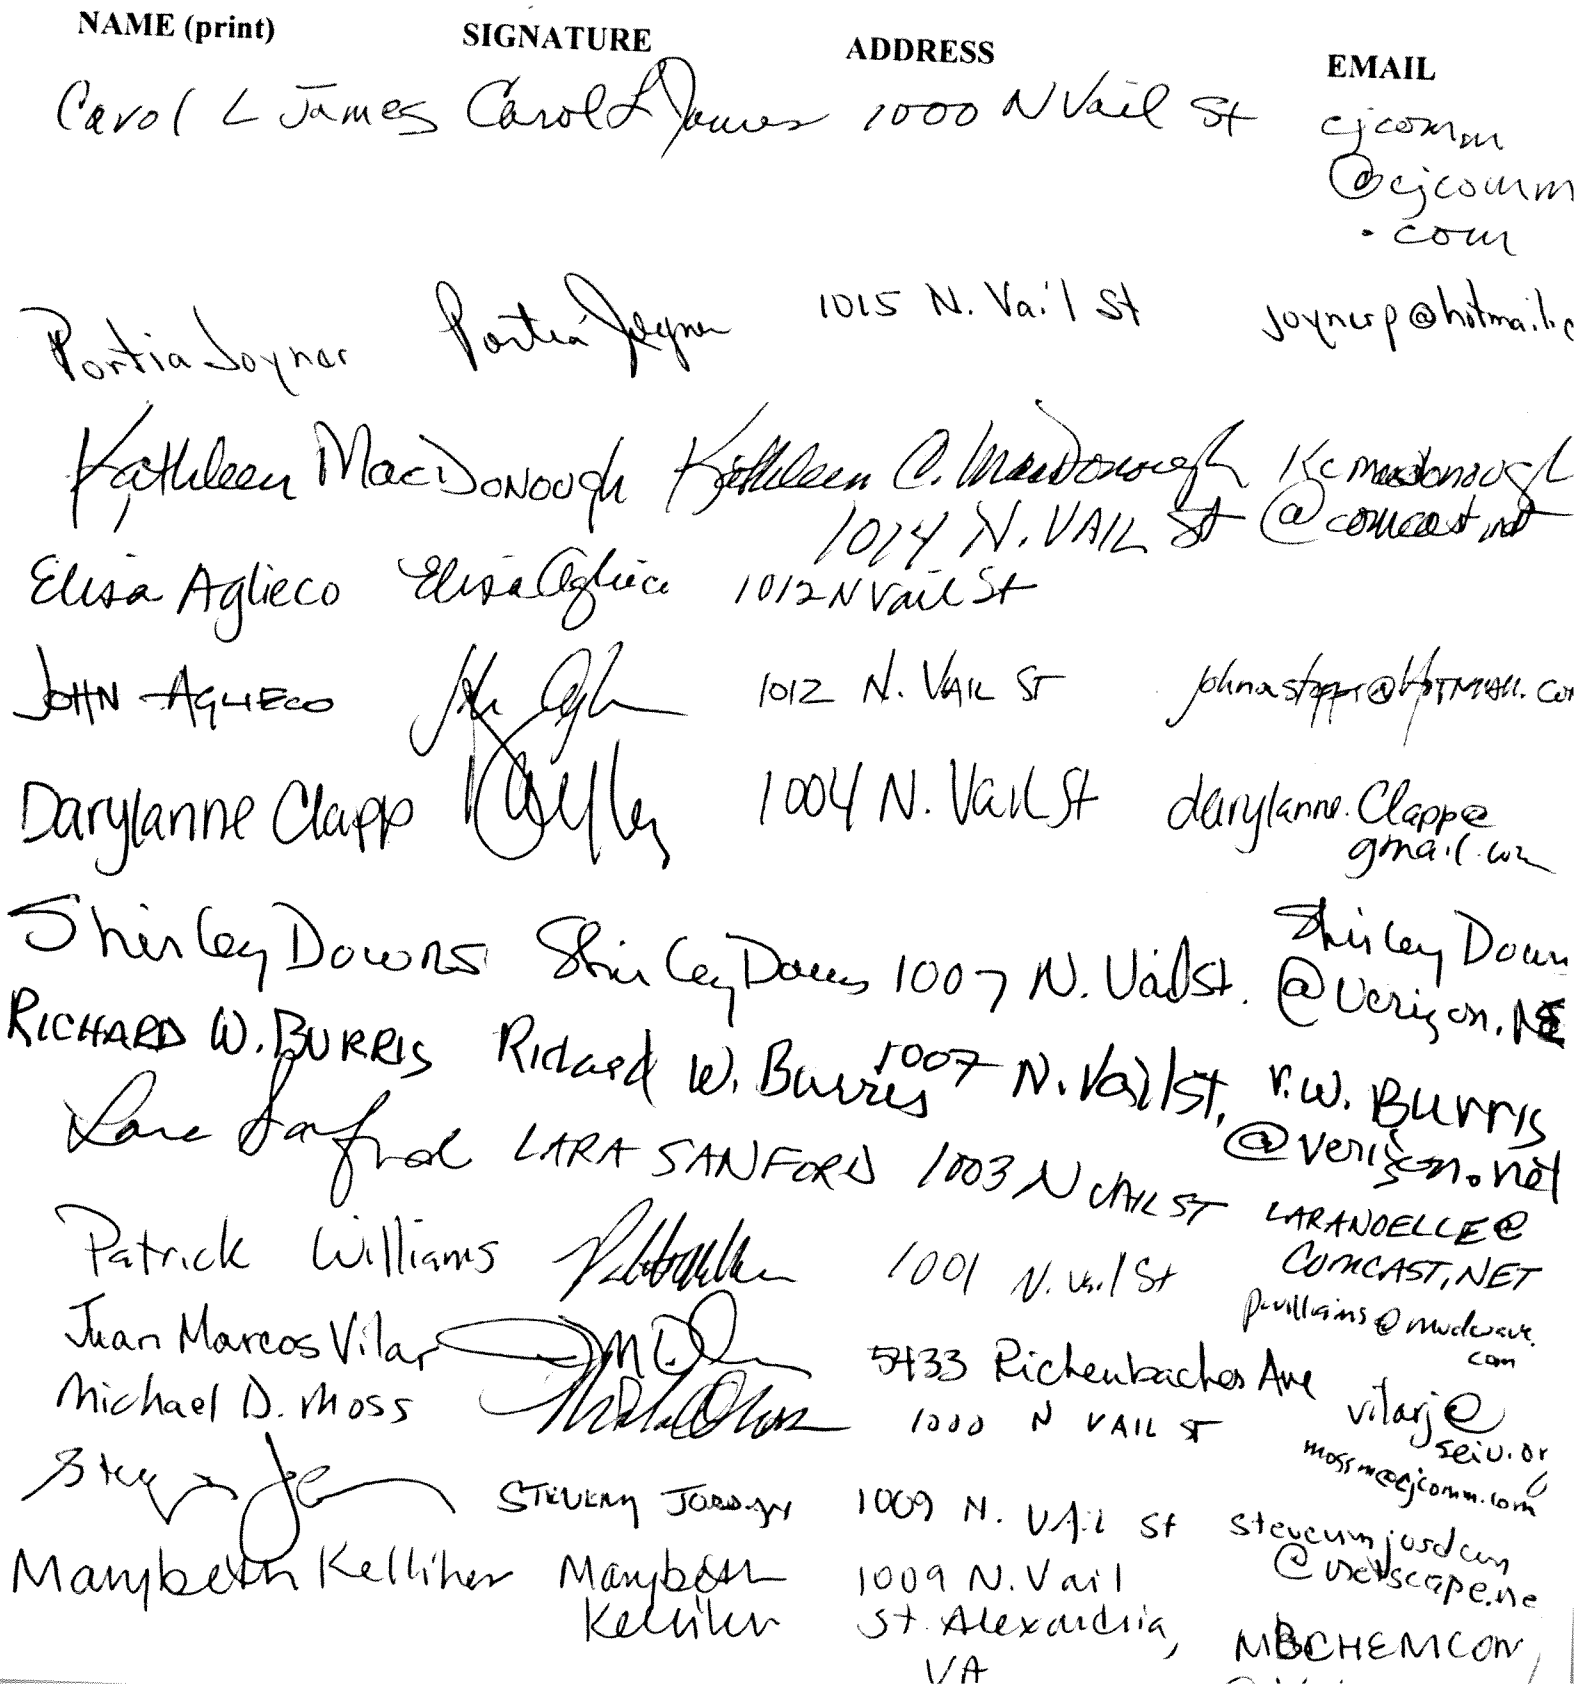 NAME (print) SIGNATURE ADDRESS EMAIL
Carol L James Carol L James 1000 N Vail St cjcomm
@cjcomm
.com
Portia Joyner Portia Joyner 1015 N. Vail St joynerp@hotmail.c
Kathleen MacDonough Kathleen C. MacDonough Kcmacdonough
1014 N. VAIL St @comcast.net
Elisa Aglieco Elisa Aglieco 1012 N Vail St
JOHN AGLIECO John 1012 N. VAIL ST @HOTMAIL.CO
Darylanne Clapp 1004 N. Vail St darylanne.Clapp@
gmail.com
Shirley Downs Shirley Downs 1007 N. Vail St. Shirley Down
@verizon.NE
RICHARD W. BURRIS Richard W. Burris 1007 N. Vail St. r.w. BURRIS
@verizon.net
Lara Sanford LARA SANFORD 1003 N VAIL ST LARANOELLE@
COMCAST.NET
Patrick Williams 1001 N. Vail St pwilliams@mudwave.
com
Juan Marcos Vilar 5433 Richenbacher Ave vilarj@
seiu.or
Michael D. Moss 1000 N VAIL ST mossm@cjcomm.com
STEVEN M JORDAN 1009 N. VAil St stevenmjordan
@netscape.ne
Marybeth Kelliher Marybeth
Kelliher 1009 N. Vail
St. Alexandria,
VA MBCHEMCON